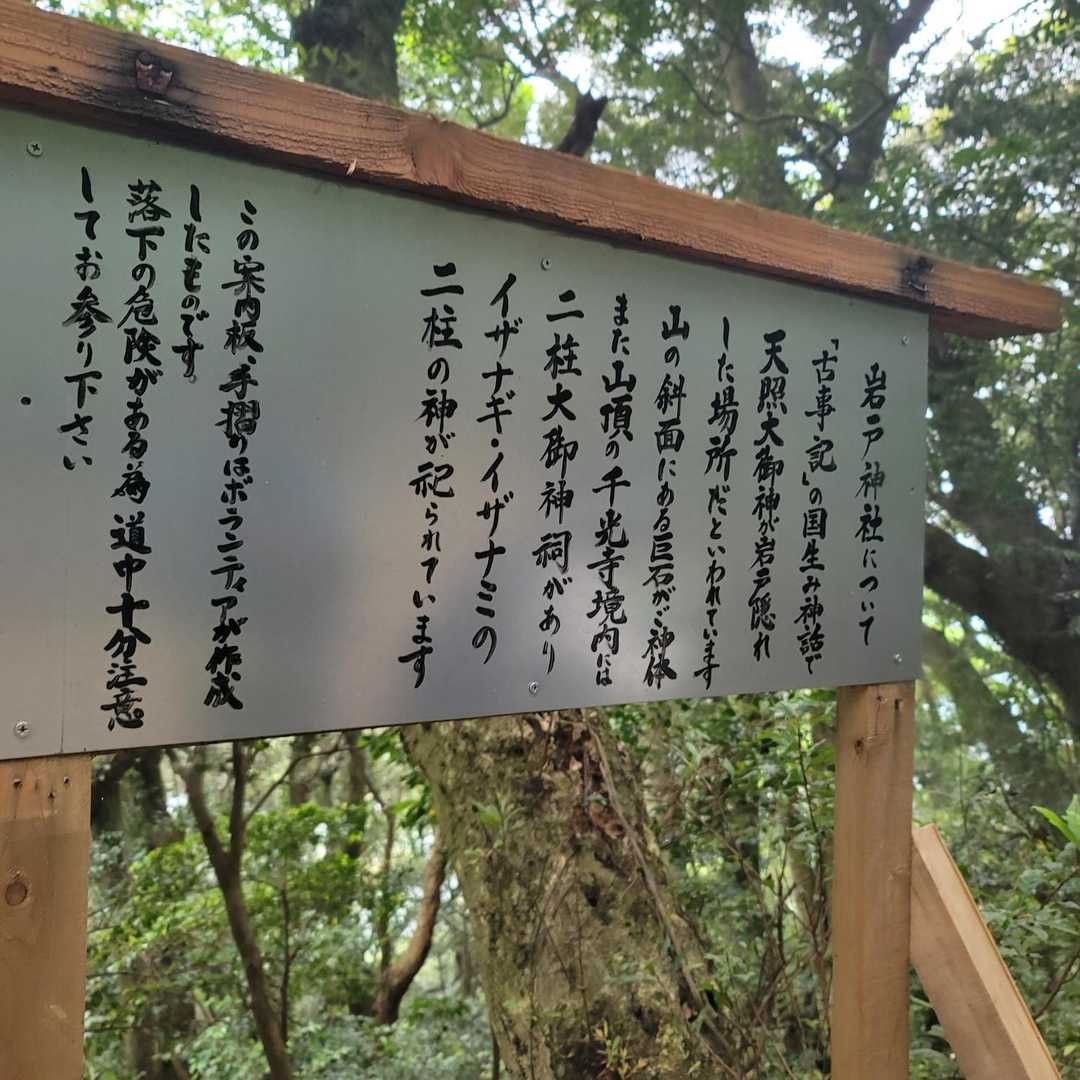 岩戸神社について
「古事記」の国生み神話で
天照大御神が岩戸隠れ
した場所だといわれています
山の斜面にある巨石がご神体
また山頂の千光寺境内には
二柱大御神祠があり
イザナギ・イザナミの
二柱の神が祀られています
この案内板、手摺りはボランティアが作成
したものです。
落下の危険がある為道中十分注意
してお参り下さい